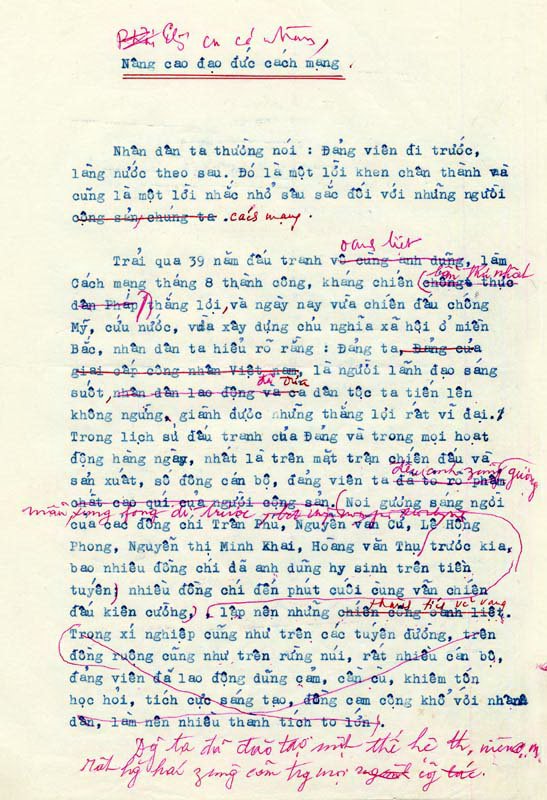 cá nhân,
Nâng cao đạo đức cách mạng.
Nhân dân ta thường nói : Đảng viên đi trước,
làng nước theo sau. Đó là một lời khen chân thành và
cũng là một lời nhắc nhở sâu sắc đối với những người
cộng sản chung ta. cách mạng.
oanh liệt
Trải qua 39 năm đấu tranh vô cùng anh dũng, làm
bền thứ nhất
Cách mạng tháng 8 thành công, kháng chiến chống thực
dân Pháp thắng lợi, và ngày nay vừa chiến đấu chống
Mỹ, cứu nước, vừa xây dựng chủ nghĩa xã hội ở miền
Bắc, nhân dân ta hiểu rõ rằng : Đảng ta, Đảng của
giai cấp công nhân Việt nam, là người lãnh đạo sáng
đã đưa
suốt, nhân dân lao động và cả dân tộc ta tiến lên
không ngừng, giành được những thắng lợi rất vĩ đại.
Trong lịch sử đấu tranh của Đảng và trong mọi hoạt
động hàng ngày, nhất là trên mặt trận chiến đấu và
đều anh zũng gương
sản xuất, số đông cán bộ, đảng viên ta đã tỏ rõ phẩm
chất cao quí của người cộng sản. Noi gương sáng ngời
mẫu, xung fong đi trước
của các đồng chí Trần Phú, Nguyễn văn Cừ, Lê Hồng
Phong, Nguyễn thị Minh Khai, Hoàng văn Thụ trước kia,
bao nhiêu đồng chí đã anh dũng hy sinh trên tiền
tuyến, nhiều đồng chí đến phút cuối cùng vẫn chiến
thành tích vẻ vang
đấu kiên cường, lập nên những chiến công oanh liệt.
Trong xí nghiệp cũng như trên các tuyến đường, trên
đồng ruộng cũng như trên rừng núi, rất nhiều cán bộ,
đảng viên đã lao động dũng cảm, cần cù, khiêm tốn
học hỏi, tích cực sáng tạo, đồng cam cộng khổ với nhân
dân, làm nên nhiều thành tích to lớn.
Đg ta đã đào tạo một thế hệ th. niên
rất hg hái zũng cảm trg mọi cg tác.